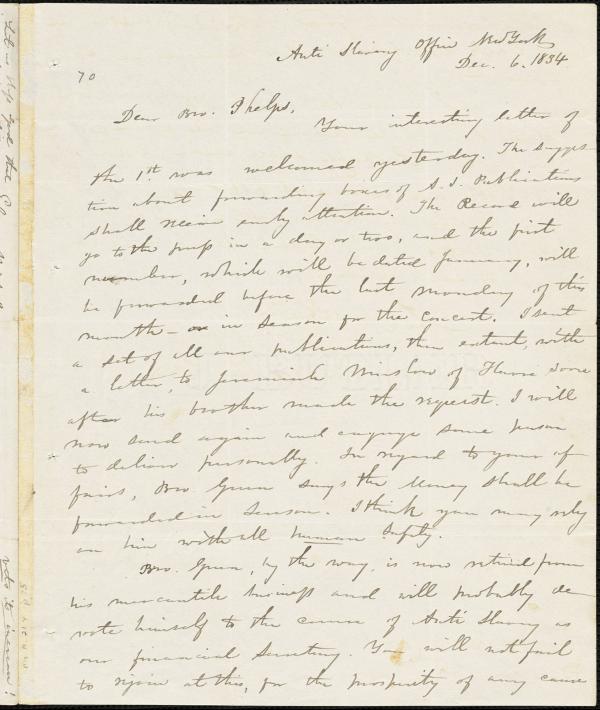 Anti Slavery Office New York
Dec. 6. 1834
70
Dear Bro. Phelps,
Your interesting letter of
the 1st was welcomed yesterday. The sugges-
tion about forwarding boxes of A. S. Publications
shall receive early attention. The Record will
go to the press in a day or two, and the first
number, which will be dated January, will
be forwarded before the last Monday of this
month – in season for the concert. I sent
a set of all our publications, then extant, with
a letter, to Jeremiah Winslow of Havre soon
after his brother made the request. I will
now send again and engage some person
to deliver personally. In regard to your af-
fairs, Bro. Green says the money shall be
forwarded in season. I think you may rely
on him with all human safety.
Bro. Green, by the way, is now retired from
his mercantile business and will probably de-
vote himself to the cause of Anti Slavery as
our financial Secretary. You will not fail
to rejoice at this, for the prosperity of any cause